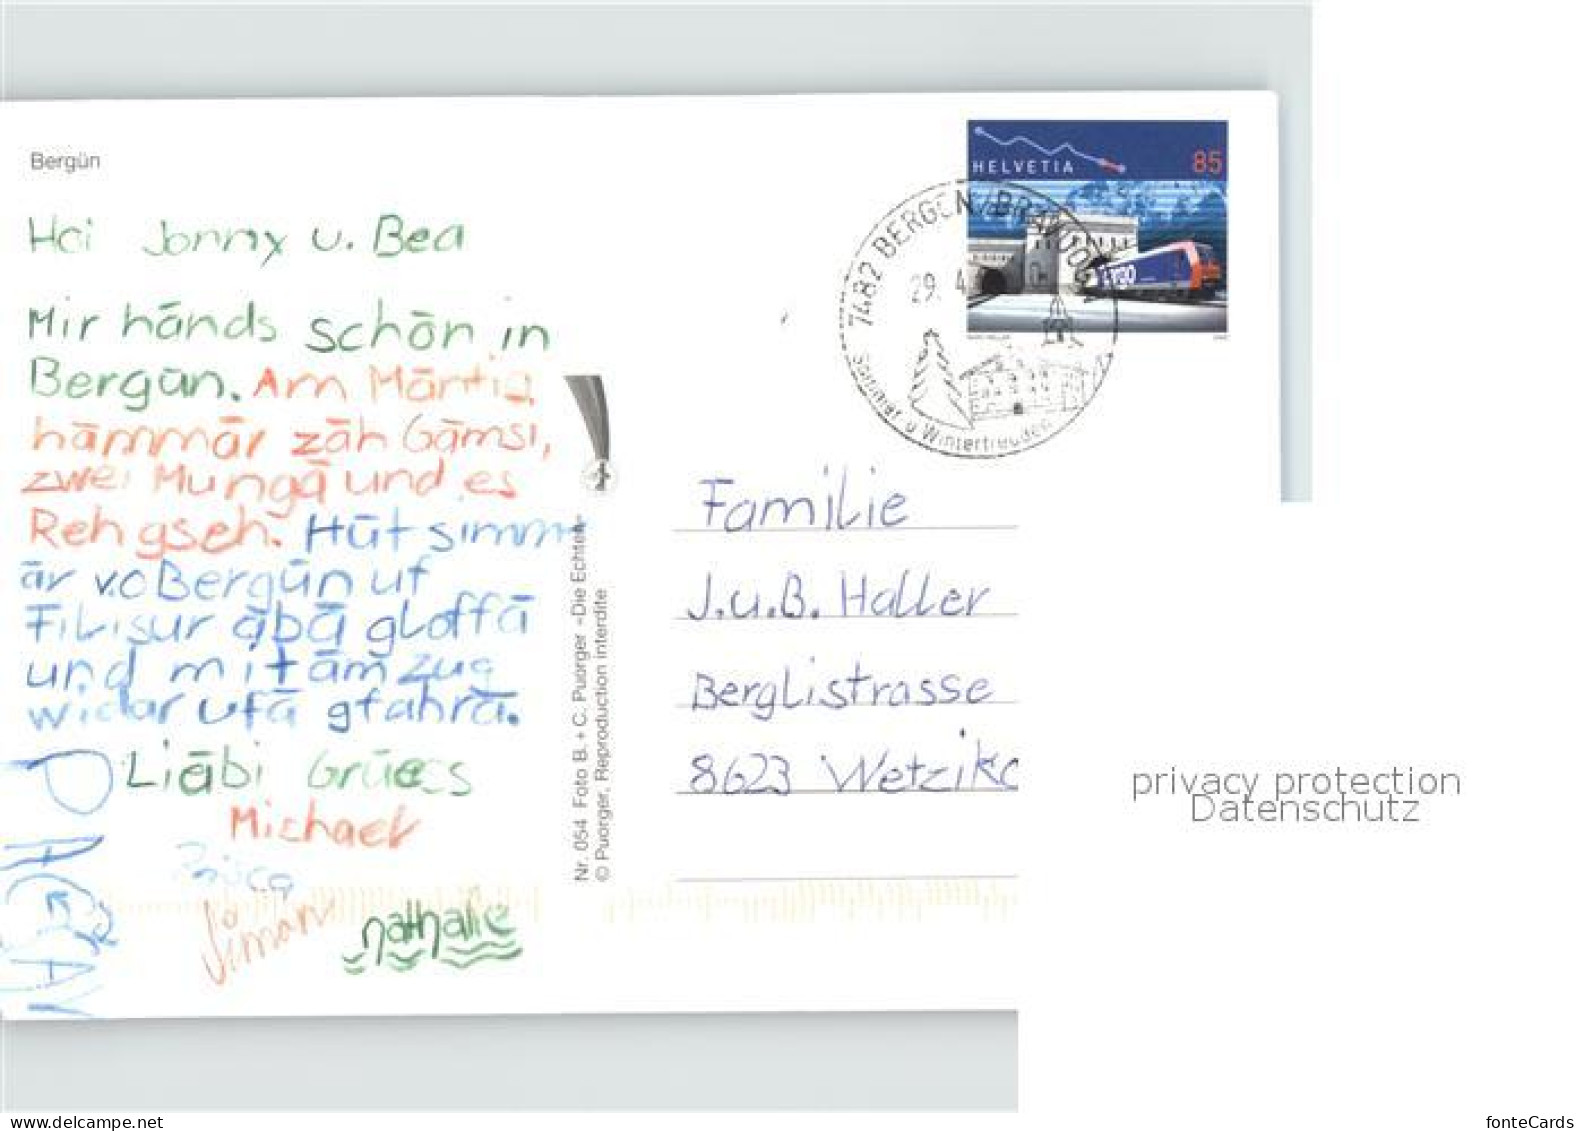 Bergün
Hoi Jonny u. Bea
Mir händs schön in
Bergün. Am Märtig
hämmär zäh Gämsi,
zwei Mungä und es
Reh gseh. Hüt simm
är vo Bergün uf
Filisur äbä gloffä
und mitäm Zug
widar ufä gfahrä.
Liäbi Grüess
Michael
Simon
nathalie
Nr. 054 Foto B. + C. Puorger »Die Echten«
© Puorger, Reproduction interdite
HELVETIA 85
7482 BERGÜN/BRAVUOGN
29. 4
Sommer u Winterfreuden
Familie
J.u.B. Haller
Berglistrasse
8623 Wetziko
privacy protection
Datenschutz
www.delcampe.net
fonteCards